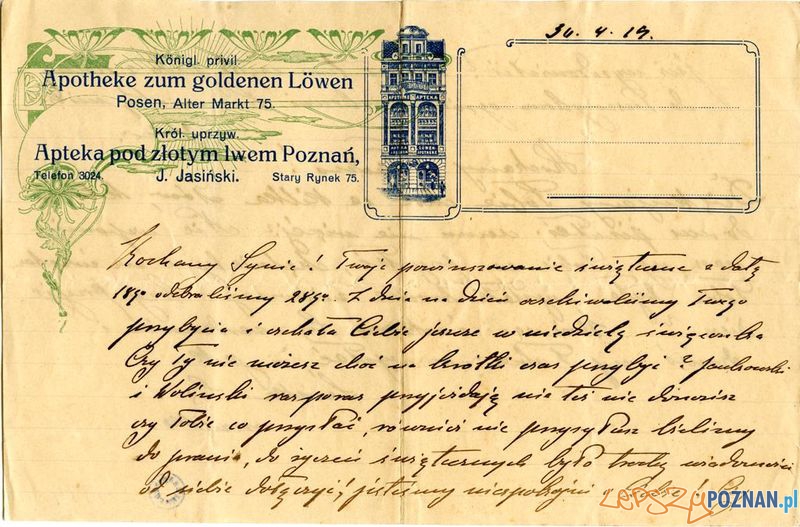 30. 4. 19.
Königl. privil.
Apotheke zum goldenen Löwen
Posen, Alter Markt 75.
Król. uprzyw.
Apteka pod złotym lwem Poznań,
Telefon 3024. J. Jasiński. Stary Rynek 75.
APOTHEKE APTEKA
Kochany Synie! Twoje powinszowanie świąteczne z datą
18go odebraliśmy 28go. Z dnia na dzień oczekiwaliśmy Twego
przybycia i czekała Ciebie jeszcze w niedzielę święconka
Czy Ty nie możesz choć na krótki czas przybyć? Jankowski
i Woliński raz poraz przyjeżdżają nie też nie donosisz
czy Tobie co przysłać, również nie przysyłasz bielizny
do prania, do życzeń świątecznych było trochę wiadomości
od siebie dołączyć, jesteśmy niespokojni o Ciebie i
POZNAN.pl